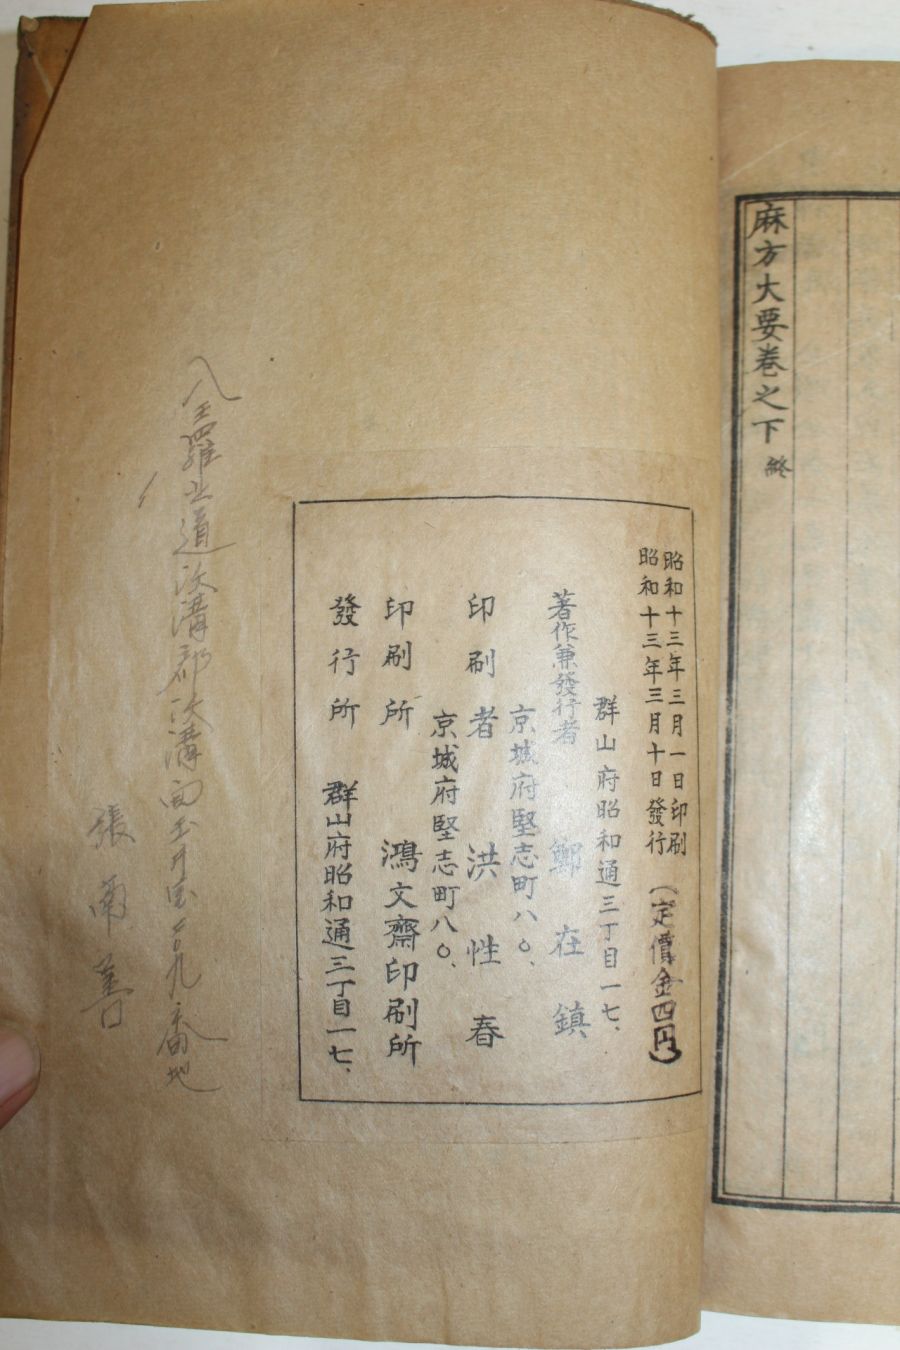 麻方大要卷之下 終
昭和十三年三月一日印刷
昭和十三年三月十日發行 (定價金四円)
群山府昭和通三丁目一七、
著作兼發行者 鄭在鎮
京城府堅志町八〇、
印刷者 洪性春
京城府堅志町八〇、
印刷所 鴻文齋印刷所
發行所 群山府昭和通三丁目一七、
全羅北道沃溝郡沃溝面玉井里 九番地
張